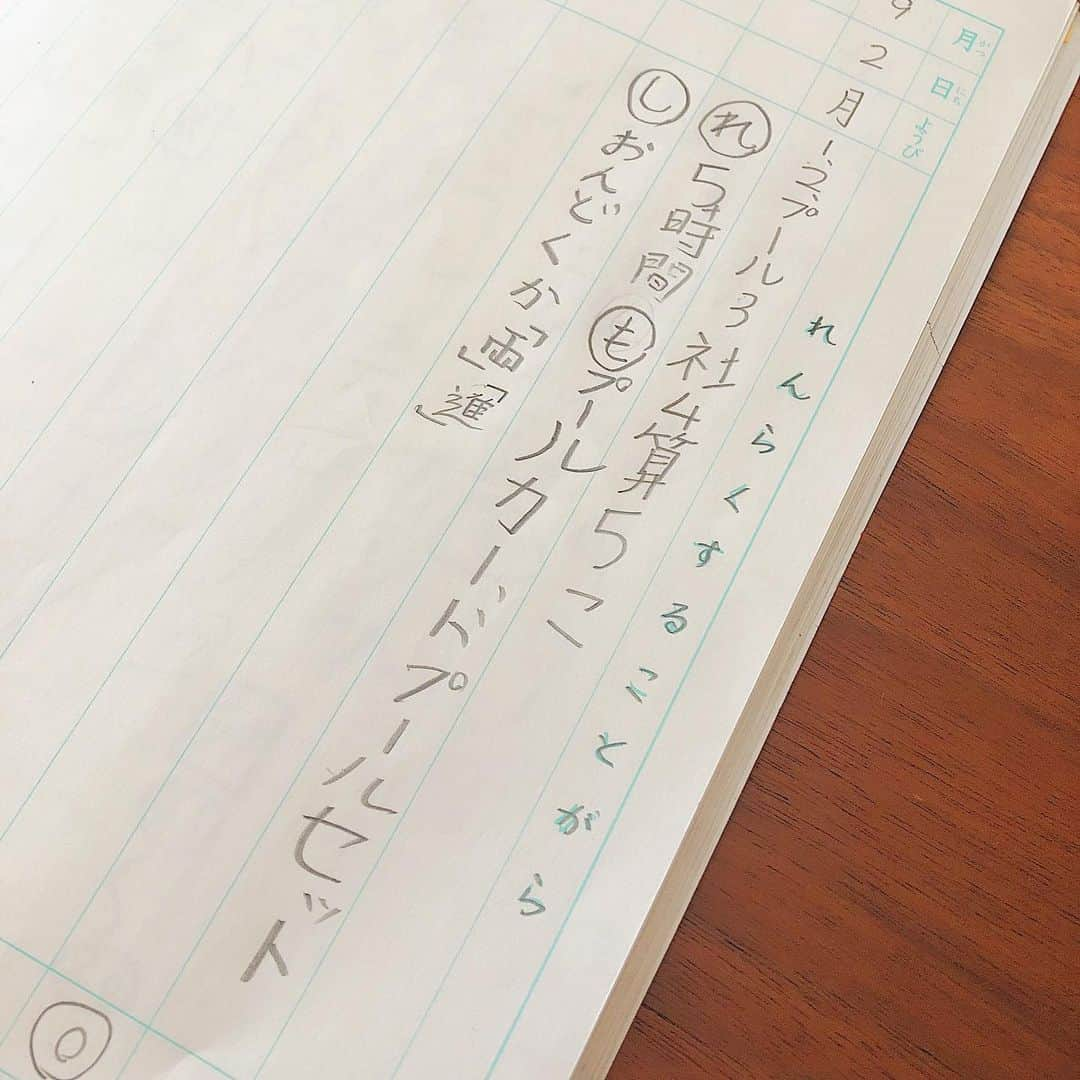 月 日 ようび れんらくすることがら
がつ にち
9 2 月 1、2、プール3社4算5こ
れ 5時間 も プールカードプールセット
し おんどくか「」「進」